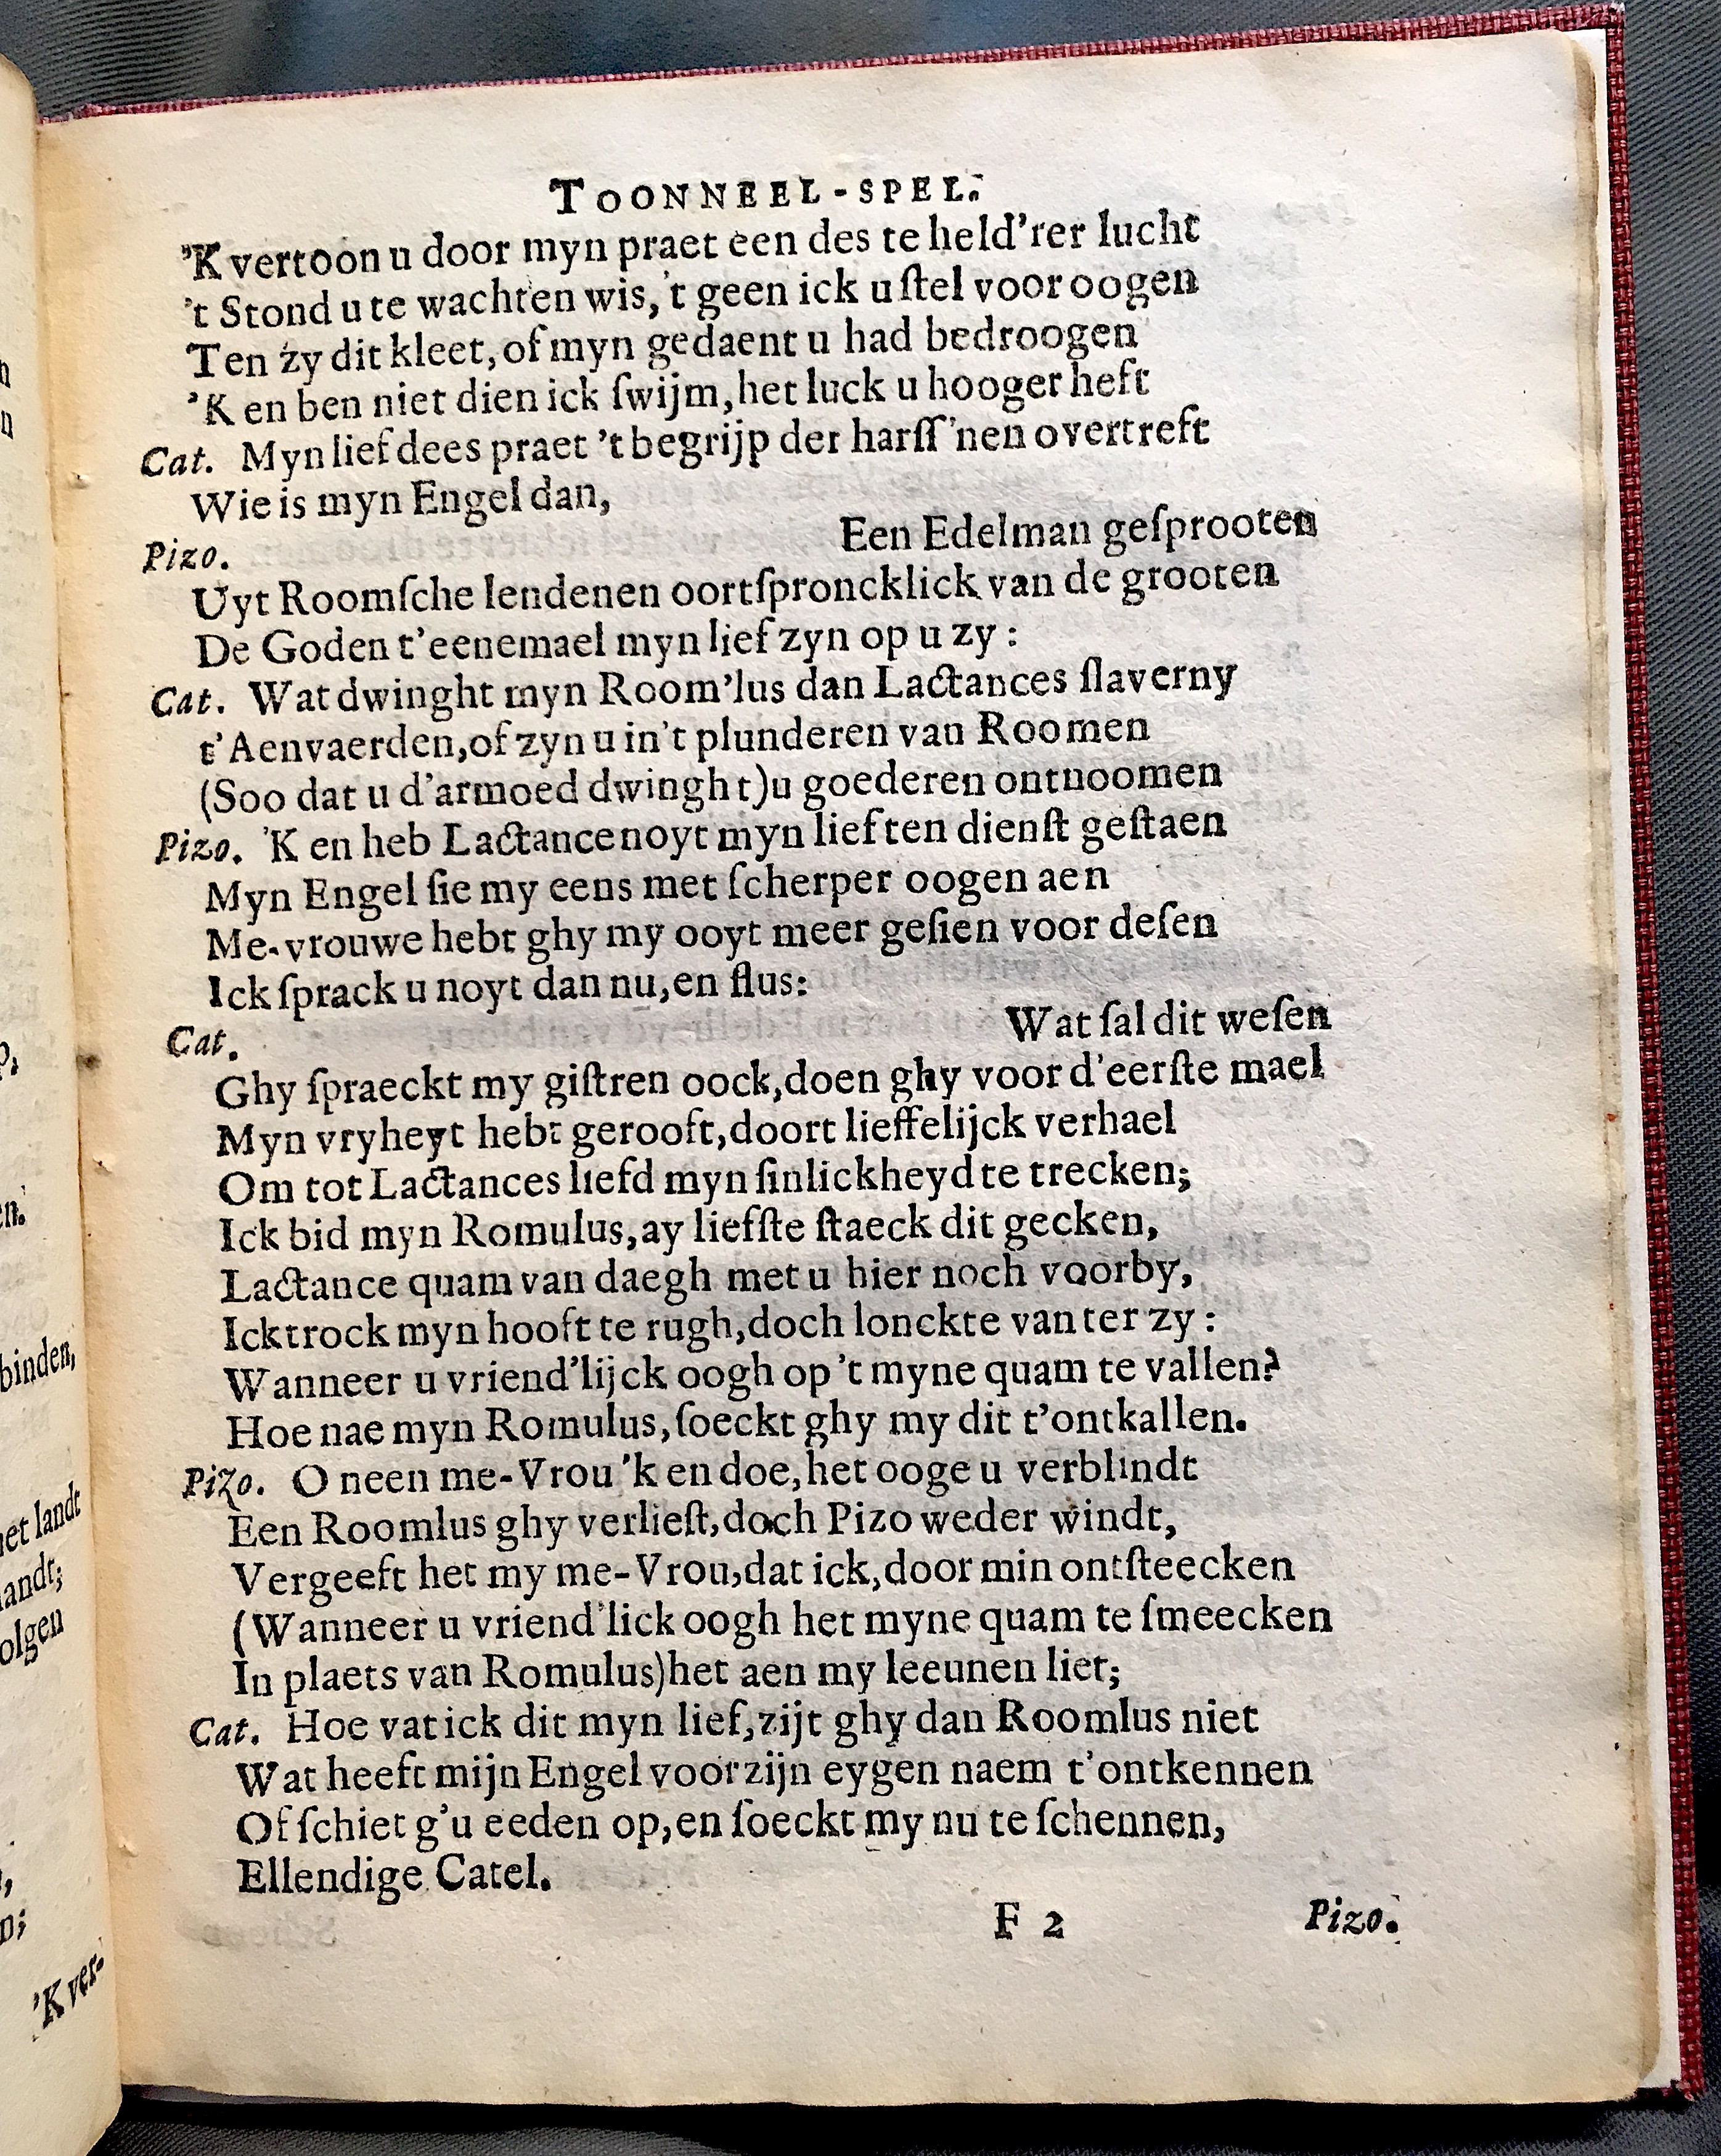 TOONNEEL-SPEL.
'K vertoon u door myn praet een des te held'rer lucht
't Stond u te wachten wis, 't geen ick u ſtel voor oogen
Ten zy dit kleet, of myn gedaent u had bedroogen
'K en ben niet dien ick ſwijm, het luck u hooger heft
Cat. Myn lief dees praet 't begrijp der harſſ'nen overtreft
Wie is myn Engel dan,
Pizo. Een Edelman geſprooten
Uyt Roomſche lendenen oortſproncklick van de grooten
De Goden t'eenemael myn lief zyn op u zy:
Cat. Wat dwinght myn Room'lus dan Lactances ſlaverny
t'Aenvaerden, of zyn u in't plunderen van Roomen
(Soo dat u d'armoed dwinght) u goederen ontnoomen
Pizo. 'K en heb Lactance noyt myn lief ten dienſt geſtaen
Myn Engel ſie my eens met ſcherper oogen aen
Me-vrouwe hebt ghy my ooyt meer geſien voor deſen
Ick ſprack u noyt dan nu, en flus:
Cat. Wat ſal dit weſen
Ghy ſpraeckt my giſtren oock, doen ghy voor d'eerſte mael
Myn vryheyt hebt gerooft, doort lieffelijck verhael
Om tot Lactances liefd myn ſinlickheyd te trecken;
Ick bid myn Romulus, ay liefſte ſtaeck dit gecken,
Lactance quam van daegh met u hier noch voorby,
Ick trock myn hooft te rugh, doch lonckte van ter zy:
Wanneer u vriend'lijck oogh op 't myne quam te vallen?
Hoe nae myn Romulus, ſoeckt ghy my dit t'ontkallen.
Pizo. O neen me-Vrou 'k en doe, het ooge u verblindt
Een Roomlus ghy verlieſt, doch Pizo weder windt,
Vergeeft het my me-Vrou, dat ick, door min ontſteecken
(Wanneer u vriend'lick oogh het myne quam te ſmeecken
In plaets van Romulus) het aen my leeunen liet;
Cat. Hoe vat ick dit myn lief, zijt ghy dan Roomlus niet
Wat heeft mijn Engel voor zijn eygen naem t'ontkennen
Of ſchiet g'u eeden op, en ſoeckt my nu te ſchennen,
Ellendige Catel.
F 2 Pizo.
binden,
het landt
landt;
olgen
'K ver-